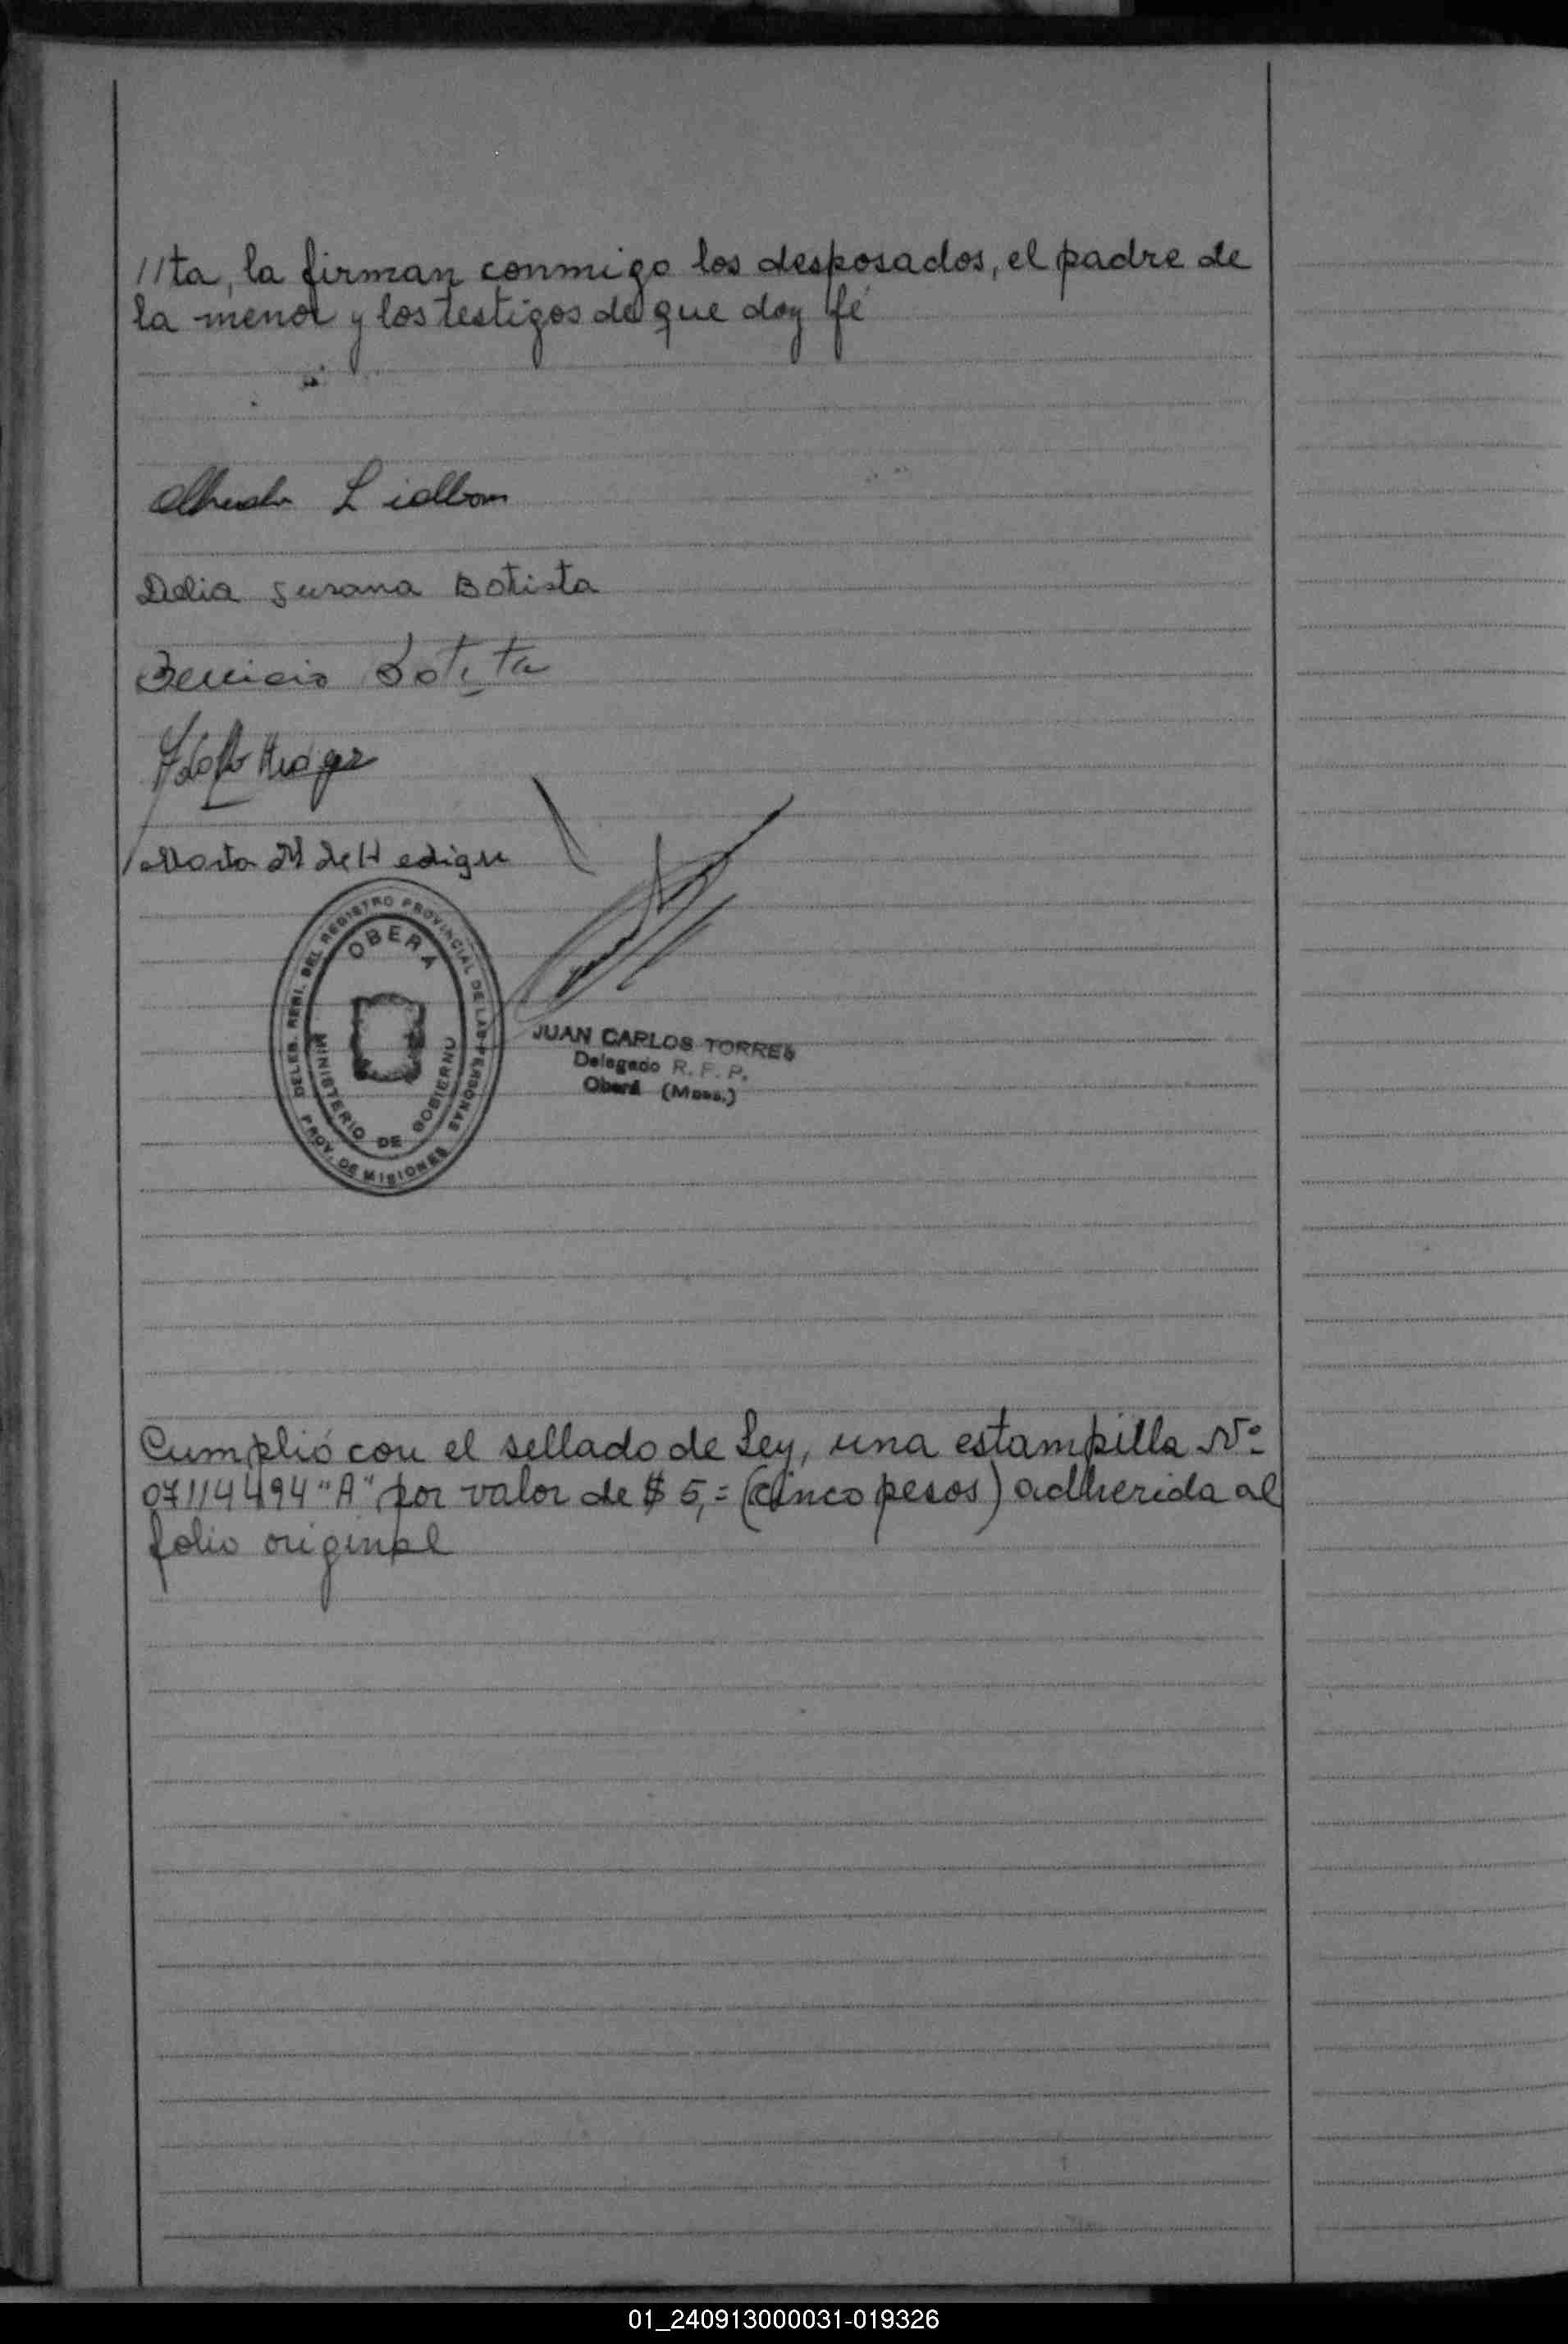 //ta, la firman conmigo los desposados, el padre de
la menor y los testigos de que doy fé
Alfredo Lidbom
Delia Susana Botista
Botista
Adolfo
Marta M de Hediger
DELEG. REGI. DEL REGISTRO PROVINCIAL DE LAS PERSONAS
OBERA
MINISTERIO DE GOBIERNO
PROV. DE MISIONES
JUAN CARLOS TORRES
Delegado R. F. P.
Oberá (Mnes.)
Cumplió con el sellado de Ley, una estampilla Nº
07114494 "A" por valor de $ 5,= (cinco pesos) adherida al
folio original
01_240913000031-019326